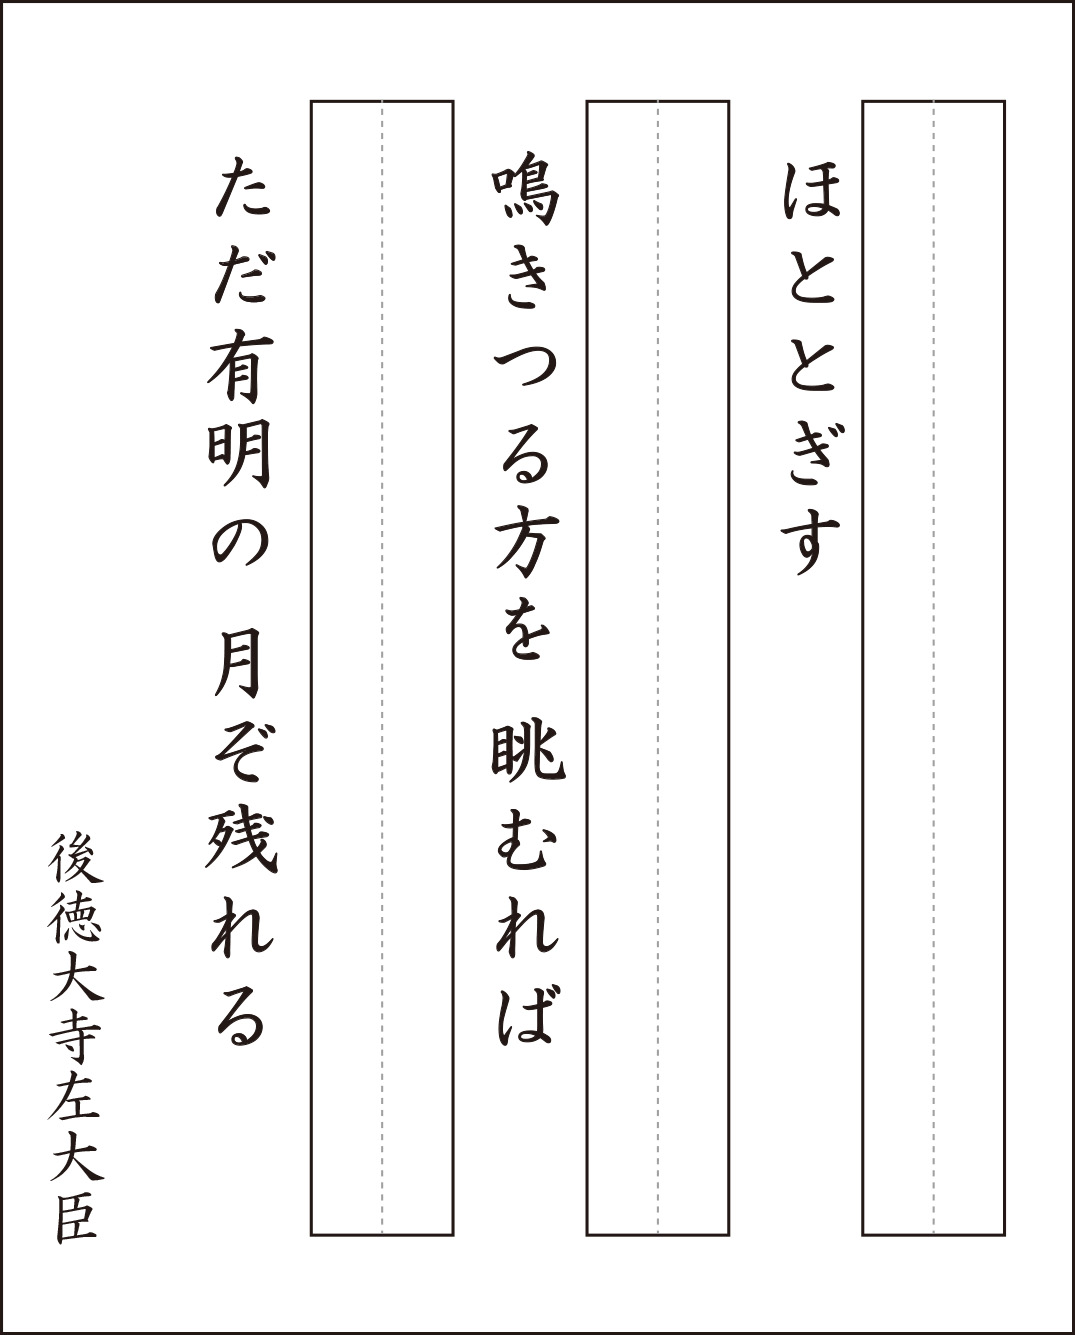 ほととぎす
鳴きつる方を 眺むれば
ただ有明の 月ぞ残れる
後徳大寺左大臣